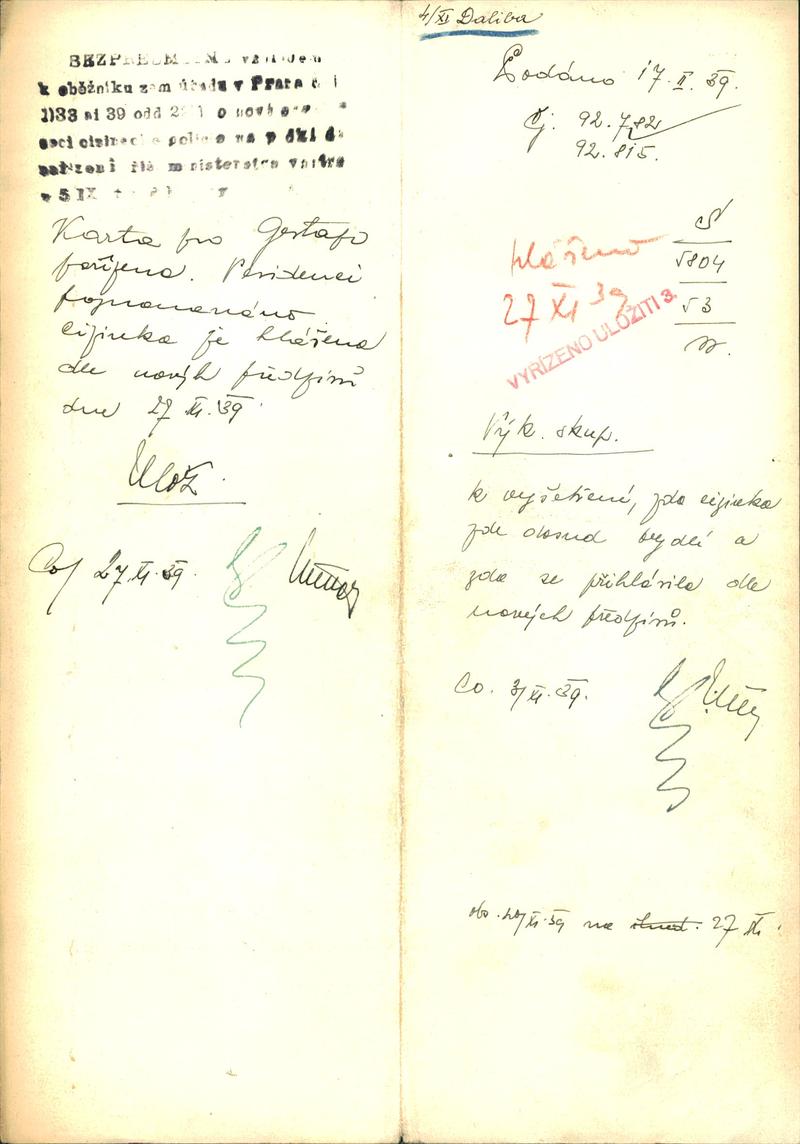 BEZPŘEDMĚTNÉ vzhledem
k oběžníku zem úřadu v Praze č j
1133 ai 39 odd
soci cizinecké policie na podkl
nařízení říš ministerstva vnitra
v 5 IX
Karta pro Gestapo
pořízena. V evidenci
poznamenáno
cizinka je hlášena
dle nových předpisů
dne 27 XI. 39.
Ulož.
Co/ 27. XI. 39.
4/XI Daliba
Podáno 17. II. 39.
Čj. 92.782
92.815.
hlášena
27 XI 39
VYŘÍZENO ULOŽITI 3.
S
√804
√3
Výk. skup.
k vyšetření, zda cizinka
zde dosud bydlí a
zda se přihlásila dle
nových předpisů.
Co. 3/XI. 39.
XI. 39 na 27 XI.